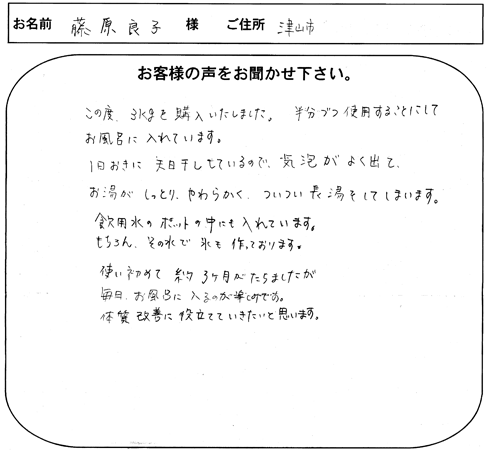 お名前 藤原良子 様 ご住所 津山市
お客様の声をお聞かせ下さい。
この度、3kgを購入いたしました。 半分づつ使用することにして
お風呂に入れています。
1日おきに天日干しをしているので、気泡がよく出て、
お湯がしっとり、やわらかく、ついつい長湯をしてしまいます。
飲用水のポットの中にも入れています。
もちろん、その水で氷も作っております。
使い初めて約3ヶ月がたちましたが
毎日、お風呂に入るのが楽しみです。
体質改善に役立てていきたいと思います。